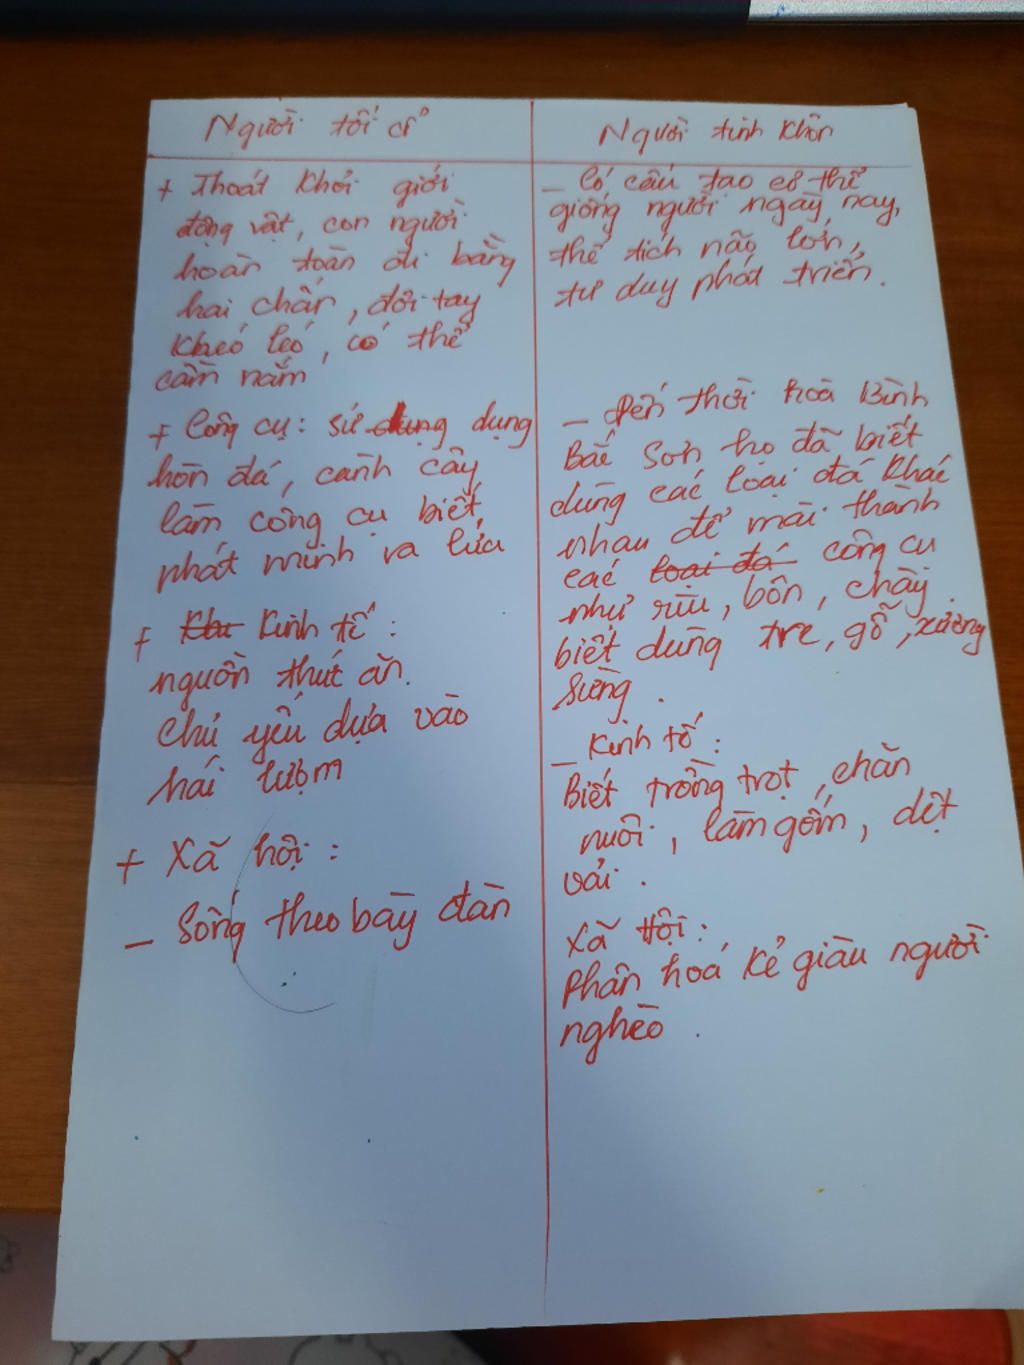 Người tối cổ
+ Thoát khỏi giới
động vật, con người
hoàn toàn đi bằng
hai chân, đôi tay
khéo léo, có thể
cầm nắm
+ Công cụ: sử dụng dụng
hòn đá, cành cây
làm công cụ biết
phát minh ra lửa
+ Khi Kinh tế:
nguồn thức ăn.
chủ yếu dựa vào
hái lượm
+ Xã hội:
- Sống theo bầy đàn
Người tinh khôn
- Có cấu tạo cơ thể
giống người ngày nay,
thể tích não lớn,
tư duy phát triển.
- Đến thời hoà Bình
Bắc Sơn họ đã biết
dùng các loại đá khác
nhau để mài thành
các loại đá công cụ
như rìu, bôn, chày.
biết dùng tre, gỗ, xương
sừng.
- Kinh tế:
Biết trồng trọt, chăn
nuôi, làm gốm, dệt
vải.
Xã Hội:
Phân hoá kẻ giàu người
nghèo.